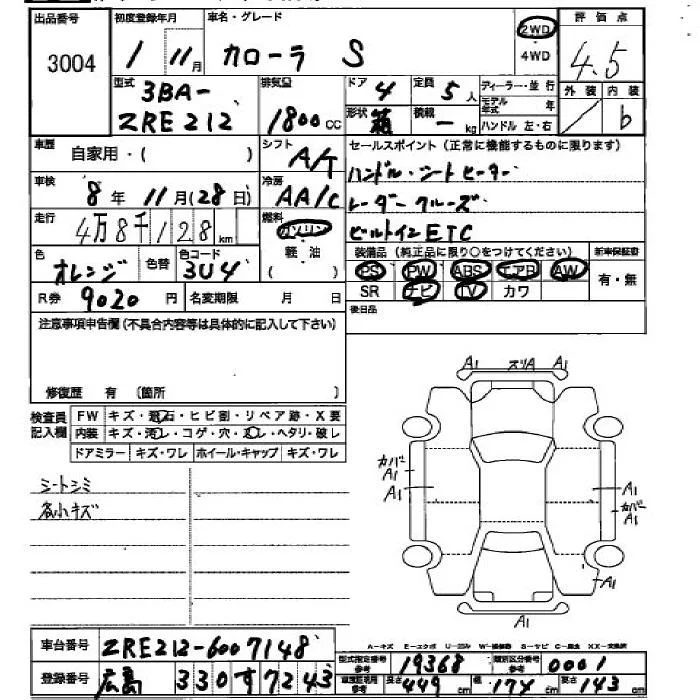 出品番号 初度登録年月 車名・グレード 評価点
3004 1 11月 カローラ S 2WD 4WD 4.5
型式 3BA-ZRE212 排気量 1800cc ドア 4 定員 5人 ディーラー・並行 外装 内装
形状 箱 積載 ー kg モデル年式 年 ハンドル 左・右 b
車歴 自家用・( ) シフト A/T セールスポイント(正常に機能するものに限ります)
車検 8年11月(28日) 冷房 AA/C ハンドル・シートヒーター
走行 4万8千128km 燃料 ガソリン レーダークルーズ
軽油 ( ) ビルトインETC
色 オレンジ 色替 色コード 3U4 装備品(純正品に限り○をつけてください) 新車保証書
PS PW ABS エアB AW 有・無
R券 9020円 名変期限 月 日 SR ナビ TV カワ
注意事項申告欄(不具合内容等は具体的に記入して下さい) 後日品
修復歴 有 〔箇所 〕
検査員記入欄 FW キズ・飛石・ヒビ割・リペア跡・X要
内装 キズ・汚レ・コゲ・穴・スレ・ヘタリ・破レ
ドアミラー キズ・ワレ ホイール・キャップ キズ・ワレ
A1 スリA A1
カバA1
A1
シートシミ
各小キズ
A1
カバA1
A1
A1
A-キズ E-エクボ
車台番号 ZRE212-6007148
型式指定番号 参考 19368 類別区分番号 参考 0001
登録番号 広島 330す7243
長さ 449cm 幅 174cm 高さ 143cm